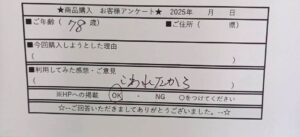 ★商品購入 お客様アンケート★ 2025年 月 日
■ご年齢( 78 歳) ■ご住所( 県)
■今回購入しようとした理由
( )
■利用してみた感想・ご意見
( こわれたから )
※HPへの掲載 OK ・ NG ○をつけてください
☆--ご回答いただきましてありがとうございました。--☆